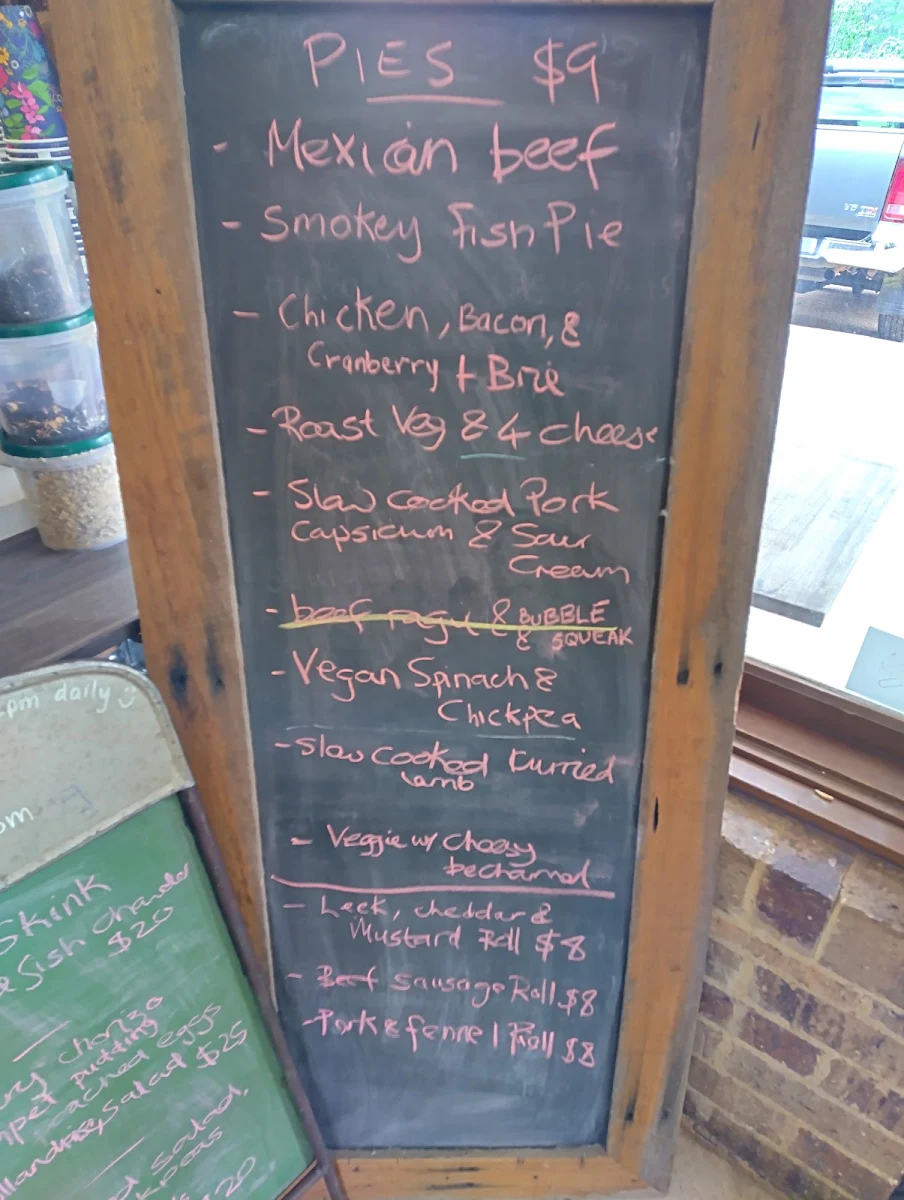 PIES $9
- Mexican beef
- Smokey Fish Pie
- Chicken, Bacon, &
Cranberry + Brie
- Roast Veg & 4 cheese
- Slow cooked Pork
Capsicum & Sour
Cream
- beef ragu & BUBBLE
& SQUEAK
- Vegan Spinach &
Chickpea
- Slow cooked Kurried
Lamb
- Veggie w/ cheesy
bechamel
- Leek, cheddar &
Mustard Roll $8
- Beef Sausage Roll $8
- Pork & fennel Roll $8
pm daily
Skink
fish chowder
$20
chorizo
pudding
eggs
salad $25
salad,
20
V6 TDI